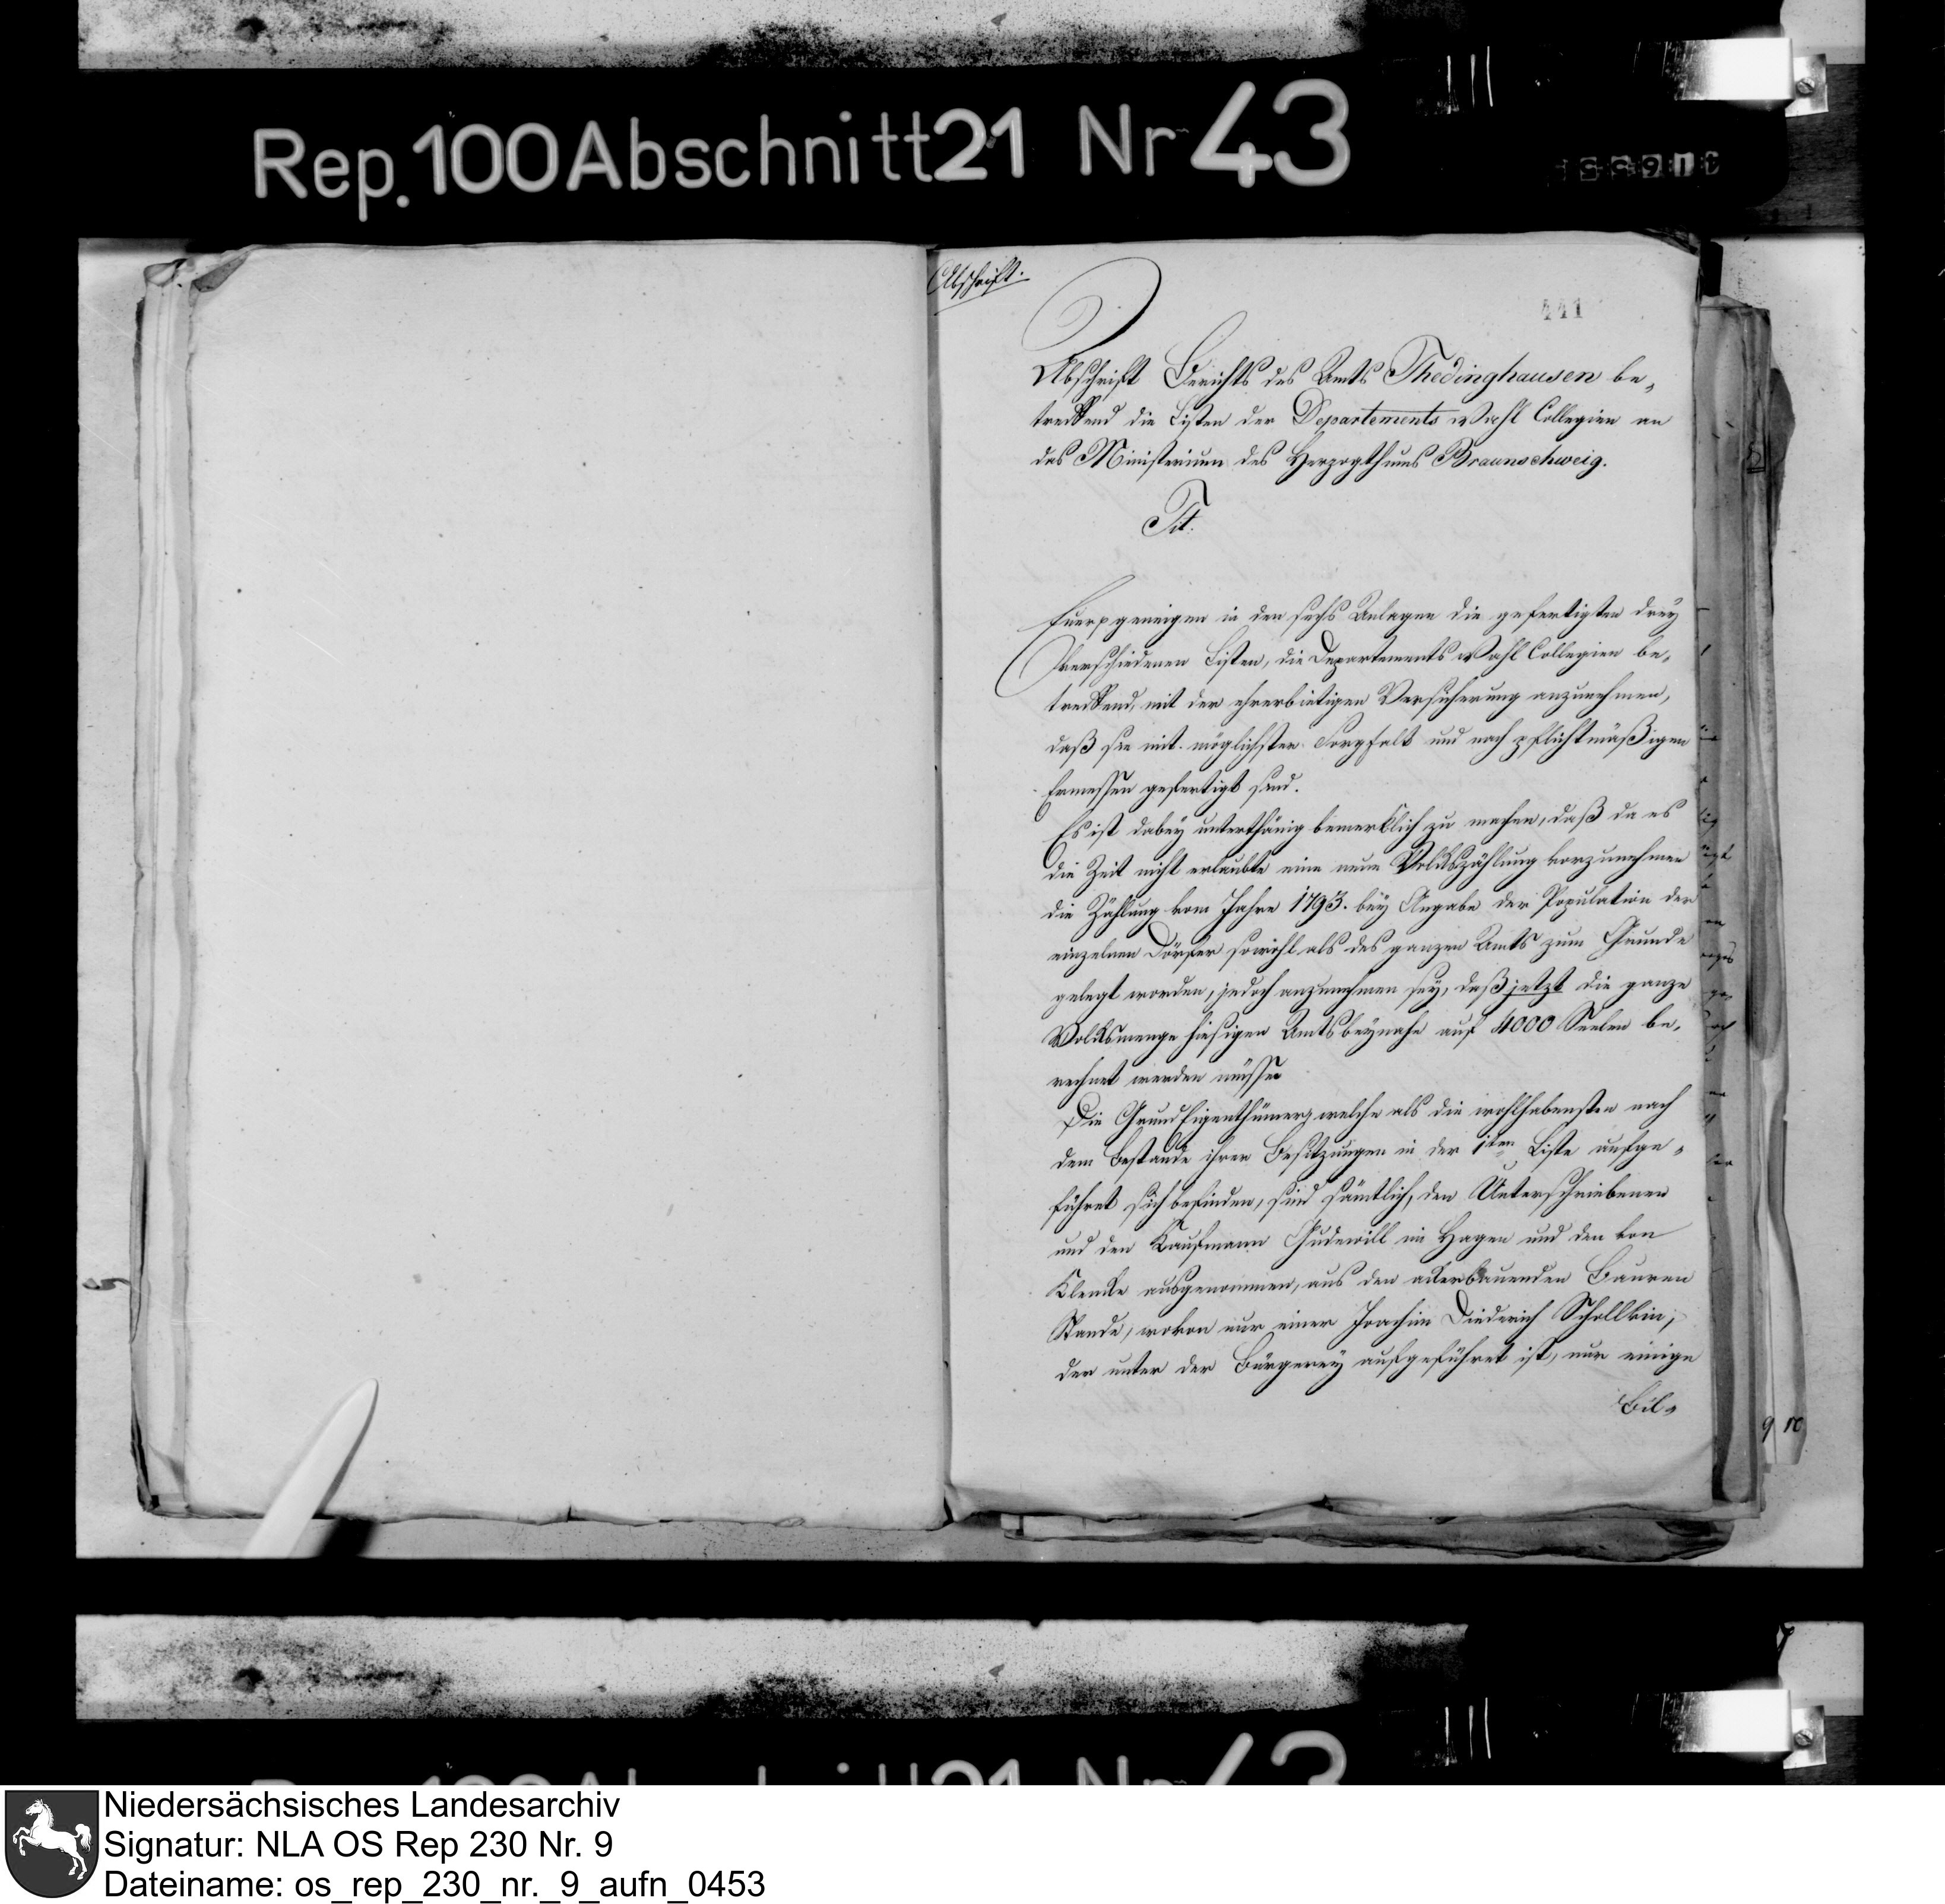 Rep. 100 Abschnitt 21 Nr 43
Abschrift.
441
Abschrift Berichts des Amts Thedinghausen be,
treffend die Listen der Departements Wahl Collegien an
das Ministerium des Herzogthums Braunschweig.
Tit.
geneigen in den sechs Anlagen die gefertigten drey
verschiedenen Listen, die Departements Wahl Collegien be,
treffend, mit der ehrerbietigen Versicherung anzunehmen,
daß sie mit möglichster Sorgfalt und nach pflichtmäßigen
Ermessen gefertigt sind.
Es ist dabey unterthänig bemerklich zu machen, daß da es
die Zeit nicht erlaubte eine neue Volkszählung vorzunehmen
die Zählung vom Jahre 1793. bey Angabe der Population der
einzelnen Dörfer sowohl als des ganzen Amts zum Grunde
gelegt worden, jedoch anzunehmen sey, daß jetzt die ganze
Volksmenge hiesigen Amts beynahe auf 4000 Seelen be,
rechnet werden müsse
Die Grund Eigenthümer, welche als die wohlhabensten nach
dem Bestande ihrer Besitzungen in der 1ten Liste aufge,
führet sich befinden, sind sämtlich, den Unterschriebenen
und den Kaufmann Gudewill im Hagen und den von
Klencke ausgenommen, aus den ackerbauenden Bauren
Stande, wovon nur einer Joachim Diederich
der unter der Bürgerey aufgeführet ist, nur einige
Bil,
Niedersächsisches Landesarchiv
Signatur: NLA OS Rep 230 Nr. 9
Dateiname: os_rep_230_nr._9_aufn_0453